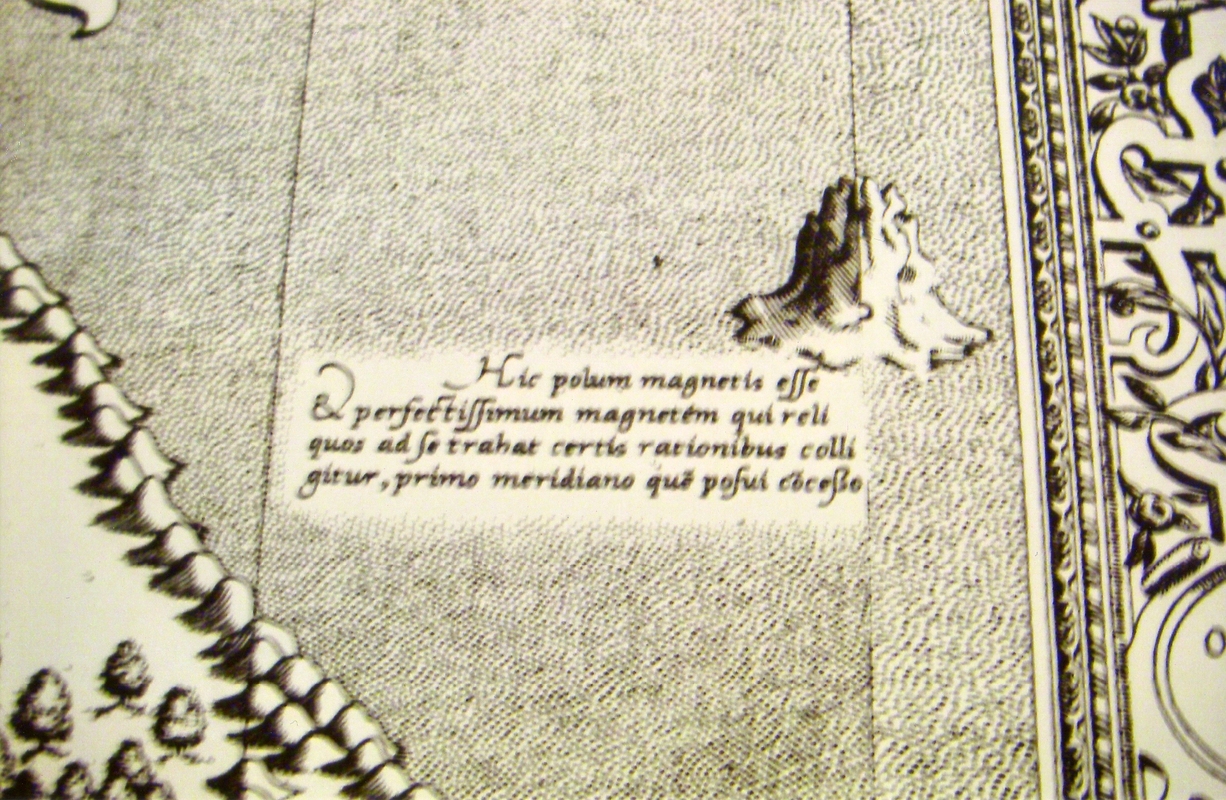 Hic polum magnetis esse
& perfectissimum magnetém qui reli
quos ad se trahat certis rationibus colli
gitur, primo meridiano quē posui cōcesso